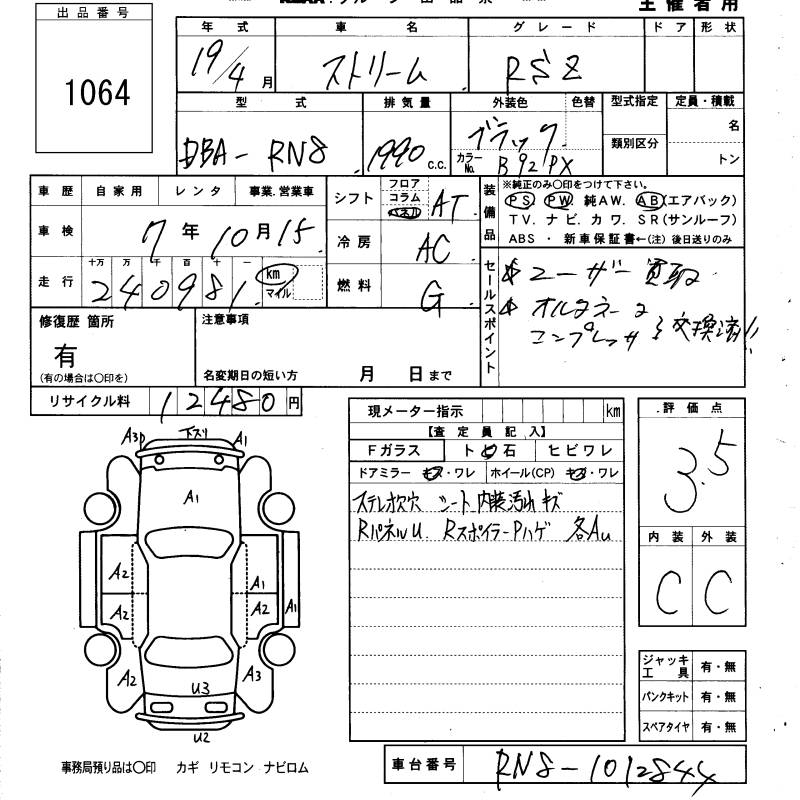 出品番号
1064
主催者用
年式 車名 グレード ドア 形状
19/4月 ストリーム RSZ
型式 排気量 外装色 色替 型式指定 定員・積載
DBA-RN8 1990 c.c. ブラック 類別区分 名
カラーNo. B92PX トン
車歴 自家用 レンタ 事業.営業車
車検 7年10月15
走行 十万 万 千 百 十 一
240981 km マイル
シフト フロア コラム パネル AT
冷房 AC
燃料 G
装備品
※純正のみ○印をつけて下さい。
PS PW 純AW. AB(エアバック)
TV. ナビ. カワ. SR(サンルーフ)
ABS ・ 新車保証書←(注) 後日送りのみ
セールスポイント
ユーザー買取
オルタネータ
コンプレッサ 交換済!!
修復歴 箇所
有
(有の場合は○印を)
注意事項
名変期日の短い方 月 日まで
リサイクル料 12480円
現メーター指示 km
【査定員記入】
Fガラス ト ビ 石 ヒビワレ
ドアミラー キズ・ワレ ホイール(CP) キズ・ワレ
ステレオ欠穴 シート内装汚れキズ
RパネルU. RスポイラーPハゲ 各AU
評価点
3.5
内装 外装
C C
ジャッキ工具 有・無
パンクキット 有・無
スペアタイヤ 有・無
A3P 下スリ A1
A1
A2 A1
A2 A2 A1
A2 U3 A3
U2
事務局預り品は○印 カギ リモコン ナビロム
車台番号 RN8-1012844